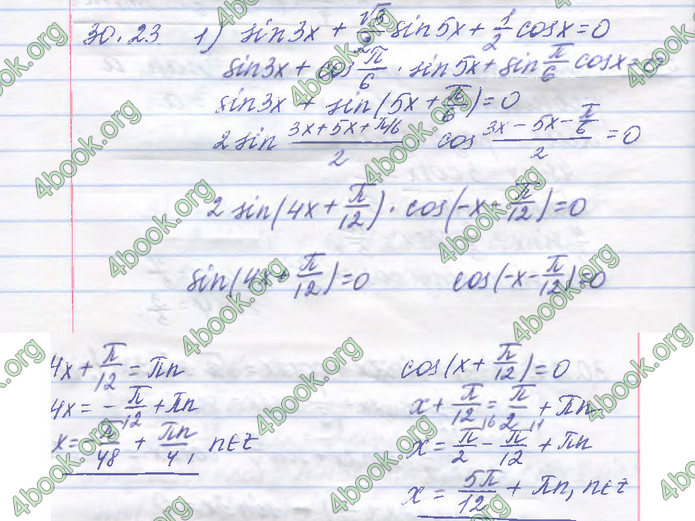 30.23 1) sin3x + √3/2 sin5x + 1/2 cosx=0
sin3x + cos π/6 · sin5x + sin π/6 cosx=0
sin3x + sin(5x + π/6)=0
2 sin (3x+5x+π/6)/2 cos (3x-5x-π/6)/2 =0
2 sin(4x+π/12)·cos(-x-π/12)=0
sin(4x+π/12)=0 cos(-x-π/12)=0
4x+π/12=πn cos(x+π/12)=0
4x=-π/12+πn x+π/12=π/2+πn
x=-π/48+πn/4, n∈Z x=π/2-π/12+πn
x=5π/12+πn, n∈Z
4book.org